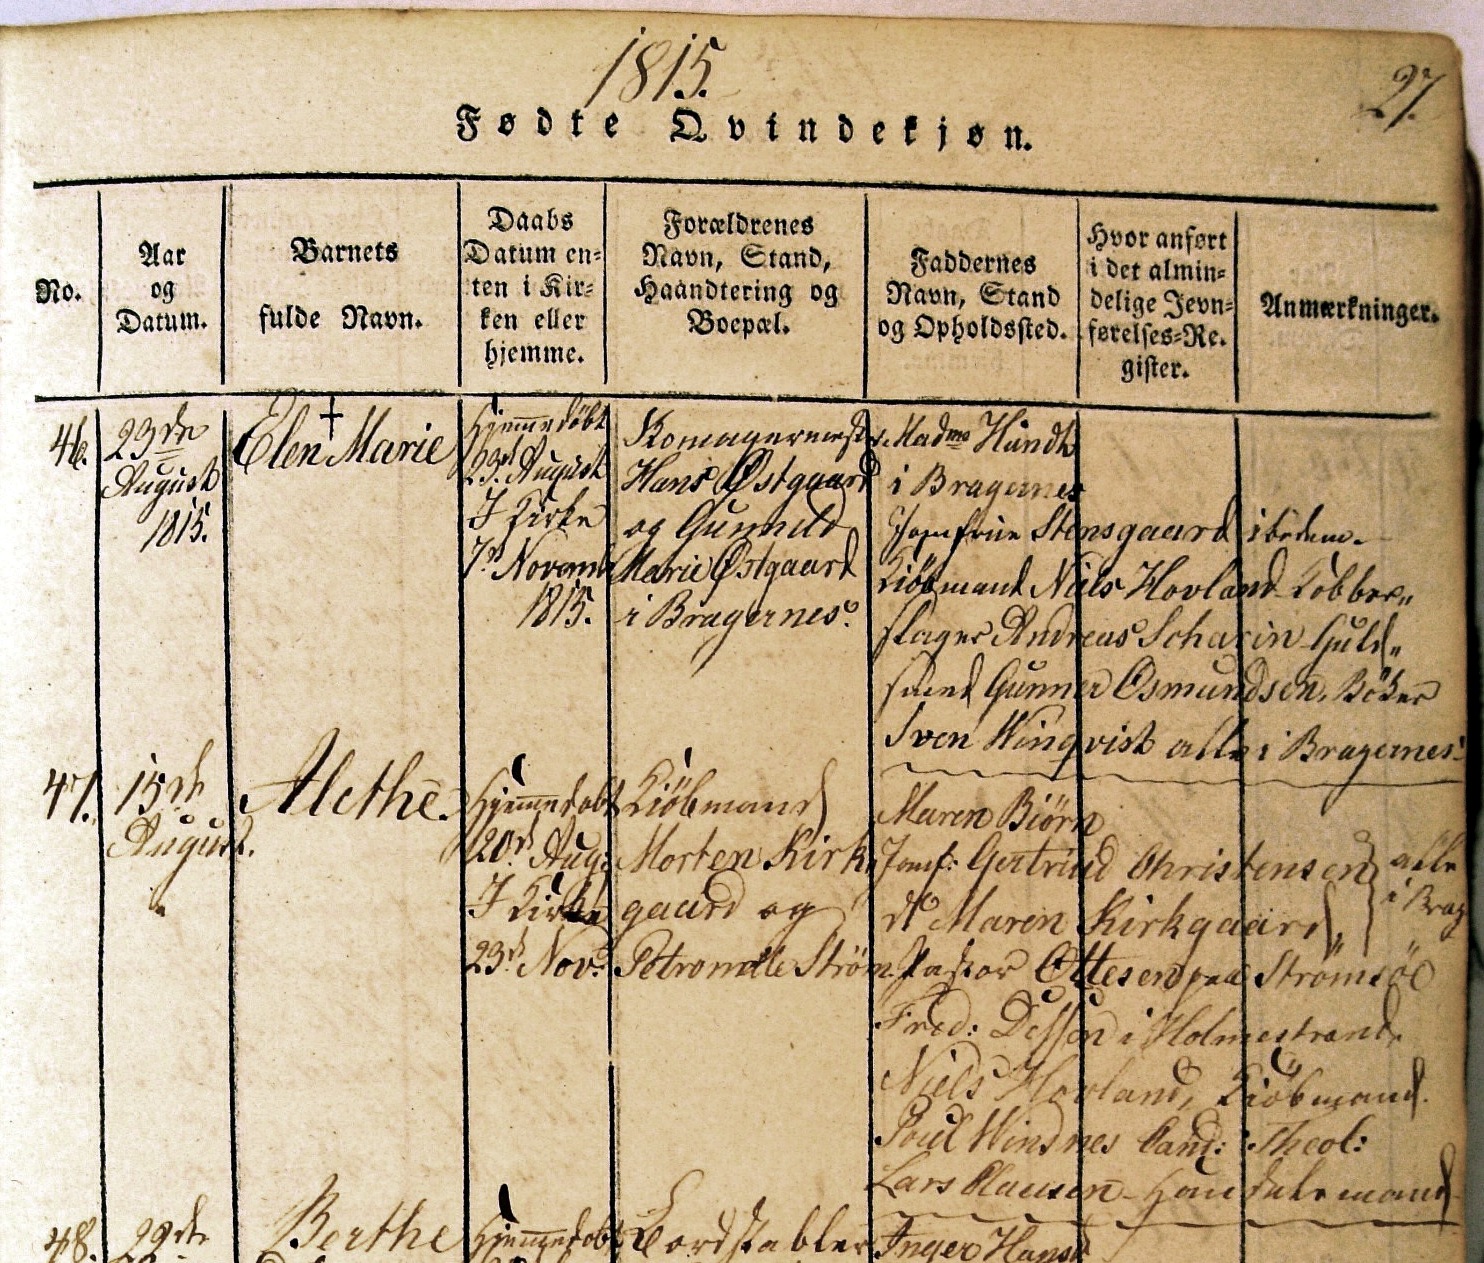 1815.
27.
Fødte Qvindekjøn.
No.
Aar
og
Datum.
Barnets
fulde Navn.
Daabs
Datum en-
ten i Kir-
ken eller
hjemme.
Forældrenes
Navn, Stand,
Haandtering og
Boepæl.
Faddernes
Navn, Stand
og Opholdssted.
Hvor anført
i det almin-
delige Jevn-
førelses-Re.
gister.
Anmærkninger.
46.
23de
August
1815.
†
Elen Marie
Hjemmedöbt
23d August
I Kirke
7d Novemb
1815.
Skomagermester
Hans Østgaard
og Gunnild
Marie Østgaard
i Bragernes.
Madme Hundt
i Bragernes
Jomfrue Stensgaard ibidem.
Kiöbmand Niels Hovland Kobber„
slager Andreas Scharin Guld„
smed Gunner Osmundsen, Böker
Sven Winqvist alle i Bragernes.
47.
15de
August.
Alethe.
Hjemmedøbt
20d Aug:
I Kirke
23d Nov:
Kiöbmand
Morten Kirk„
gaard og
Petronelle Ström
Maren Biörn
Jomf: Gertrud Christensen
do Maren Kirkgaard„
alle
i Brag
Pastor Ottesen paa Strömsöe
Fred: Dessen i Holmestrand.
Niels Hovland, Kiöbmand.
Poul Windnes Cand: Theol:
Lars Clausen - Handelsmand
48.
22de
Berthe
Hjemmedøbt
Bordstabler
Inger Hansd